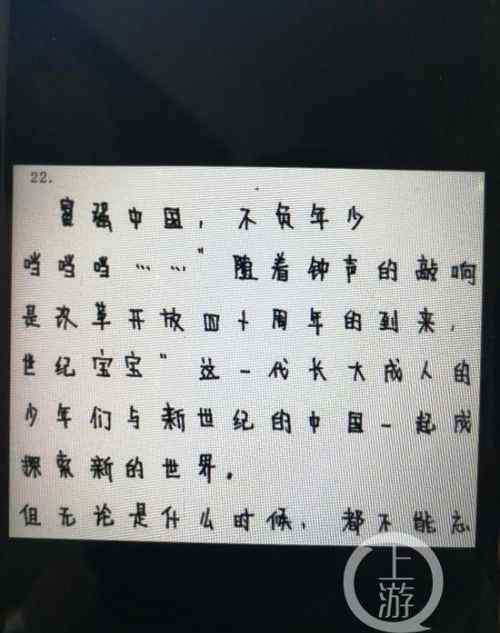 22.
富强中国,不负年少
当当当……"随着钟声的敲响
是改革开放四十周年的到来,
世纪宝宝"这一代长大成人的
少年们与新世纪的中国一起成
探索新的世界。
但无论是什么时候,都不能忘
上游